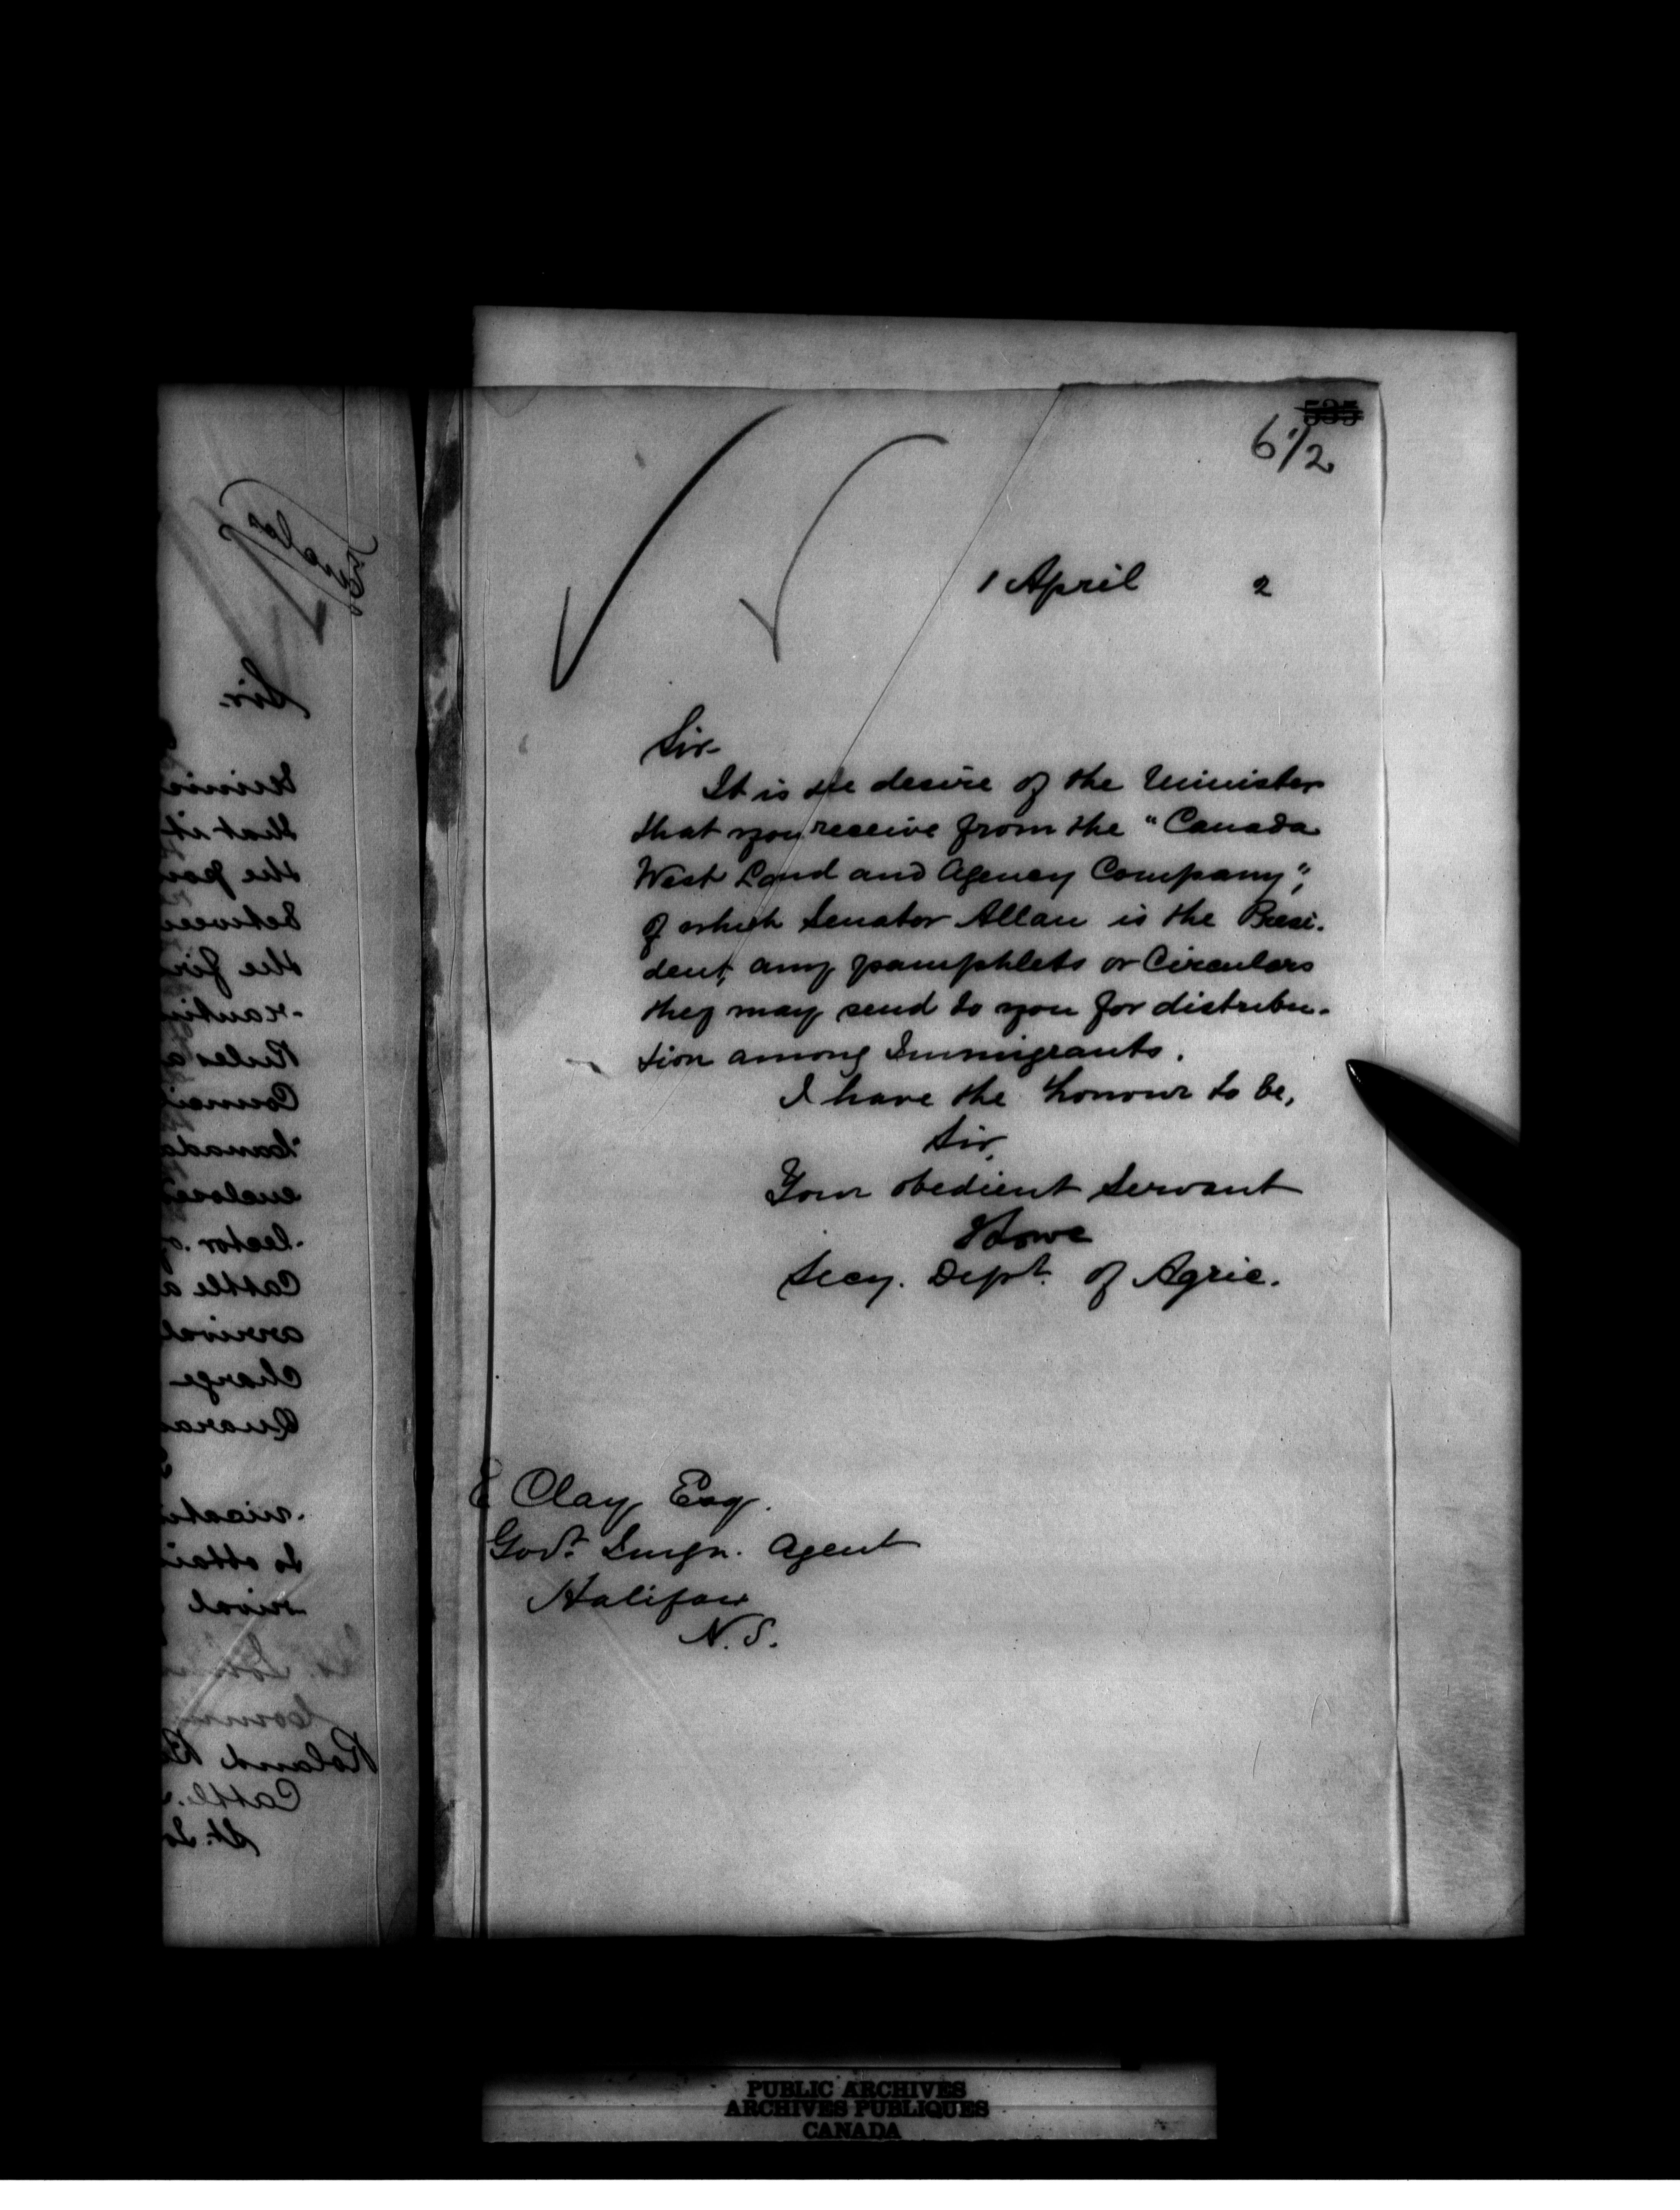 535
612
1 April 2
Sir
It is the desire of the Minister
that you receive from the "Canada
West Land and Agency Company",
of which Senator Allan is the Presi-
dent, any pamphlets or Circulars
they may send to you for distribu-
tion among Immigrants.
I have the honour to be,
Sir,
Your obedient Servant
Secy. Dept. of Agric.
E Clay Esq.
Govt. Imgn. Agent
Halifax
N.S.
Sir.
that it
between
Rules
Cattle
arrival
Charge
PUBLIC ARCHIVES
ARCHIVES PUBLIQUES
CANADA